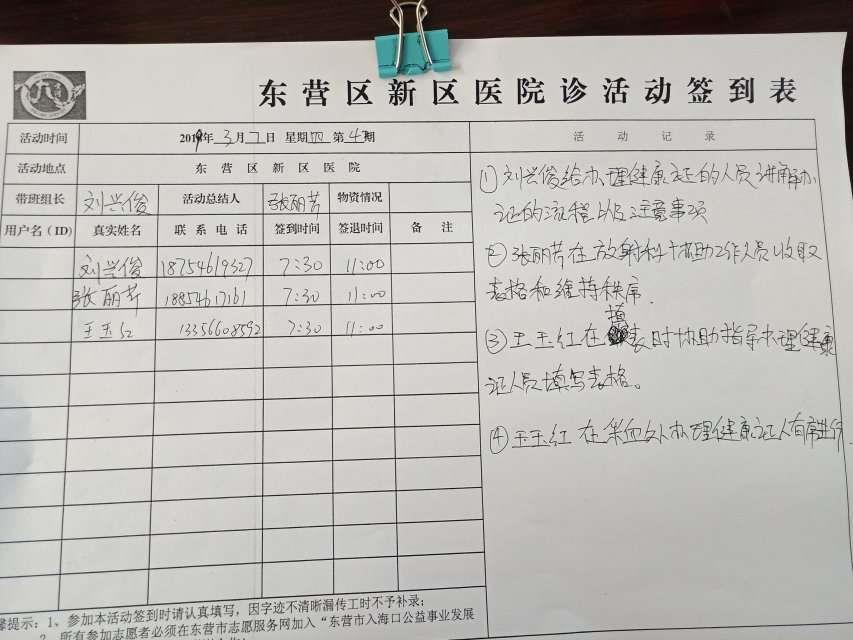 东营区新区医院诊活动签到表
活动时间 2019年3月7日 星期四 第4期 活动记录
活动地点 东营区新区医院
带班组长 刘兴俊 活动总结人 张丽芳 物资情况
用户名（ID） 真实姓名 联系电话 签到时间 签退时间 备注
刘兴俊 18754619327 7:30 11:00
张丽芳 18854617161 7:30 11:00
王玉红 13356608592 7:30 11:00
①刘兴俊给办理健康证的人员讲解办
证的流程以及注意事项
②张丽芳在放射科协助工作人员收取
表格和维持秩序.
③王玉红在填表时协助指导办理健康
证人员填写表格。
④王玉红在采血处办理健康证人员进行
馨提示：1、参加本活动签到时请认真填写，因字迹不清晰漏传工时不予补录；
2、所有参加志愿者必须在东营市志愿服务网加入“东营市入海口公益事业发展